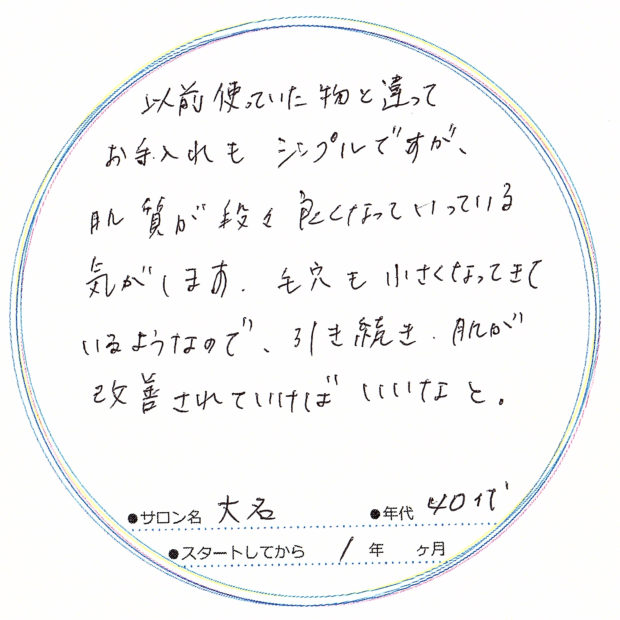 以前使っていた物と違って
お手入れも シンプルですが、
肌質が段々良くなっていっている
気がします。毛穴も小さくなってきて
いるようなので、引き続き、肌が
改善されていけばいいなと。
●サロン名 大名 ●年代 40代
●スタートしてから 1年 ヶ月